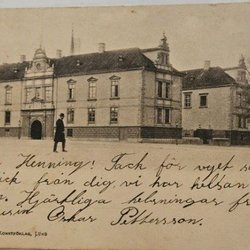 Henning! Tack för vyet s
ick från dig, vi har helsan
n. Hjärtliga helsningar fr
Oskar Pettersson.
LUND